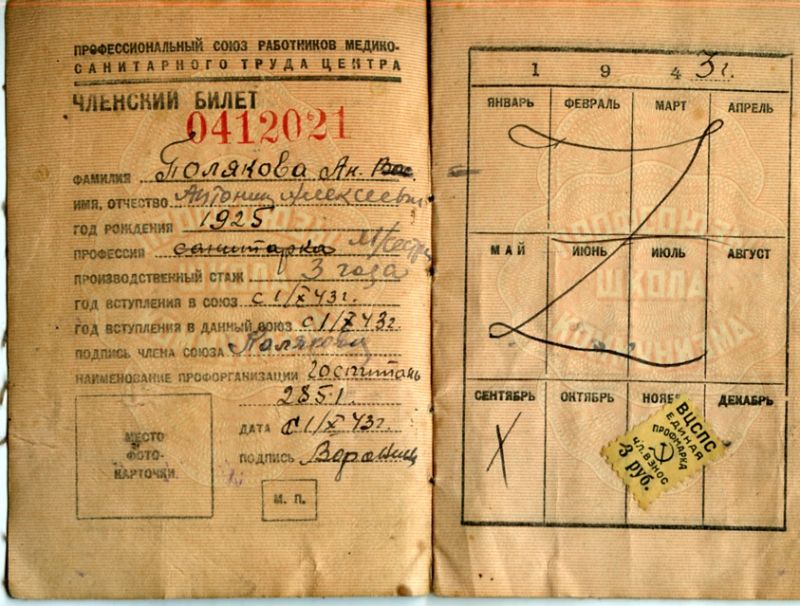 ПРОФЕССИОНАЛЬНЫЙ СОЮЗ РАБОТНИКОВ МЕДИКО-
САНИТАРНОГО ТРУДА ЦЕНТРА
ЧЛЕНСКИЙ БИЛЕТ
0412021
ФАМИЛИЯ Полякова Ан. Вас
ИМЯ, ОТЧЕСТВО Антонина Алексеевна
ГОД РОЖДЕНИЯ 1925
ПРОФЕССИЯ санитарка М/сестра
ПРОИЗВОДСТВЕННЫЙ СТАЖ 3 года
ГОД ВСТУПЛЕНИЯ В СОЮЗ с 1/X 43 г.
ГОД ВСТУПЛЕНИЯ В ДАННЫЙ СОЮЗ с 1/X 43 г.
ПОДПИСЬ ЧЛЕНА СОЮЗА Полякова
НАИМЕНОВАНИЕ ПРОФОРГАНИЗАЦИИ Госпиталь
2851.
МЕСТО
ФОТО-
КАРТОЧКИ
ДАТА с 1/X 43 г.
ПОДПИСЬ
М. П.
1 9 4 3 г.
ЯНВАРЬ ФЕВРАЛЬ МАРТ АПРЕЛЬ
МАЙ ИЮНЬ ИЮЛЬ АВГУСТ
СЕНТЯБРЬ ОКТЯБРЬ НОЯБ ДЕКАБРЬ
X
ВЦСПС
ЕДИНАЯ
ПРОФМАРКА
ЧЛ. ВЗНОС
3 руб.